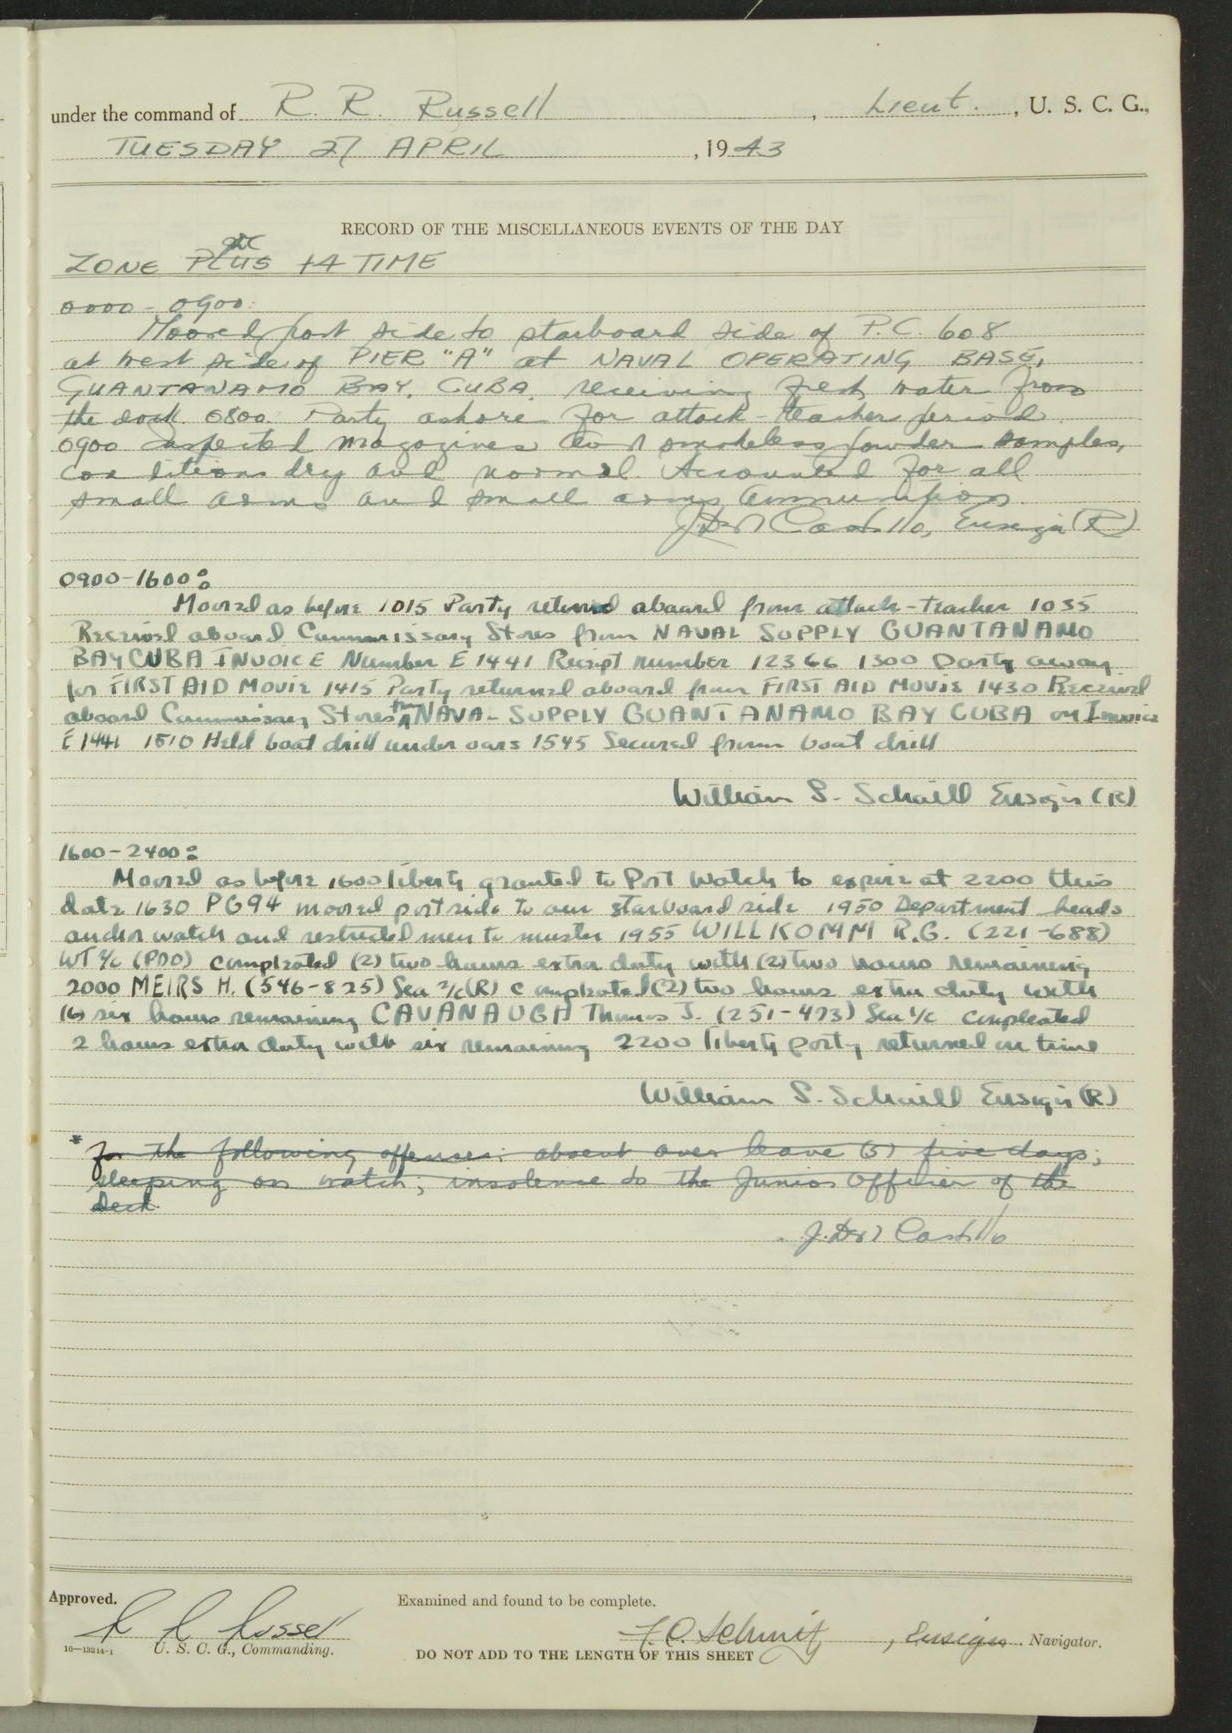 under the command of R. R. Russell, Lieut., U. S. C. G.,
TUESDAY 27 APRIL, 1943
RECORD OF THE MISCELLANEOUS EVENTS OF THE DAY
ZONE PLUS +4 TIME
0000 - 0900:
Moored port side to starboard side of P.C. 608
at west side of PIER "A" at NAVAL OPERATING BASE,
GUANTANAMO BAY, CUBA, receiving fresh water from
the dock. 0800 Party ashore for attack-teacher period.
0900 inspected magazines and smokeless powder samples,
conditions dry and normal. Accounted for all
small arms and small arms ammunition
Castillo, Ensign (R)
0900-1600:
Moored as before 1015 Party returned aboard from attack-teacher 1035
Received aboard Commissary Stores from NAVAL SUPPLY GUANTANAMO
BAY CUBA INVOICE Number E 1441 Receipt number 12366 1300 Party away
for FIRST AID MOVIE 1415 Party returned aboard from FIRST AID MOVIE 1430 Received
aboard Commissary Stores from NAVAL SUPPLY GUANTANAMO BAY CUBA on Invoice
E 1441 1510 Held boat drill under oars 1545 Secured from boat drill
William S. Schaill Ensign (R)
1600-2400:
Moored as before 1600 liberty granted to Port Watch to expire at 2200 this
date 1630 PG94 moored port side to our starboard side 1950 Department heads
anchor watch and restricted men to muster 1955 WILLKOMM R.G. (221-688)
completed (2) two hours extra duty with (2) two hours remaining
2000 MEIRS H. (546-825) Sea 2/c (R) completed (2) two hours extra duty with
(6) six hours remaining CAVANAUGH Thomas J. (251-473) Sea 1/c compleated
2 hours extra duty with six remaining 2200 liberty party returned on time
William S. Schaill Ensign (R)
* for the following offenses: absent over leave (5) five days;
sleeping on watch; insolence to the Junior Officer of the
Deck.
J. Castillo
Approved. Examined and found to be complete.
R R Russell F.O. Schmitz, Ensign Navigator.
16—13214-1 U. S. C. G., Commanding. DO NOT ADD TO THE LENGTH OF THIS SHEET